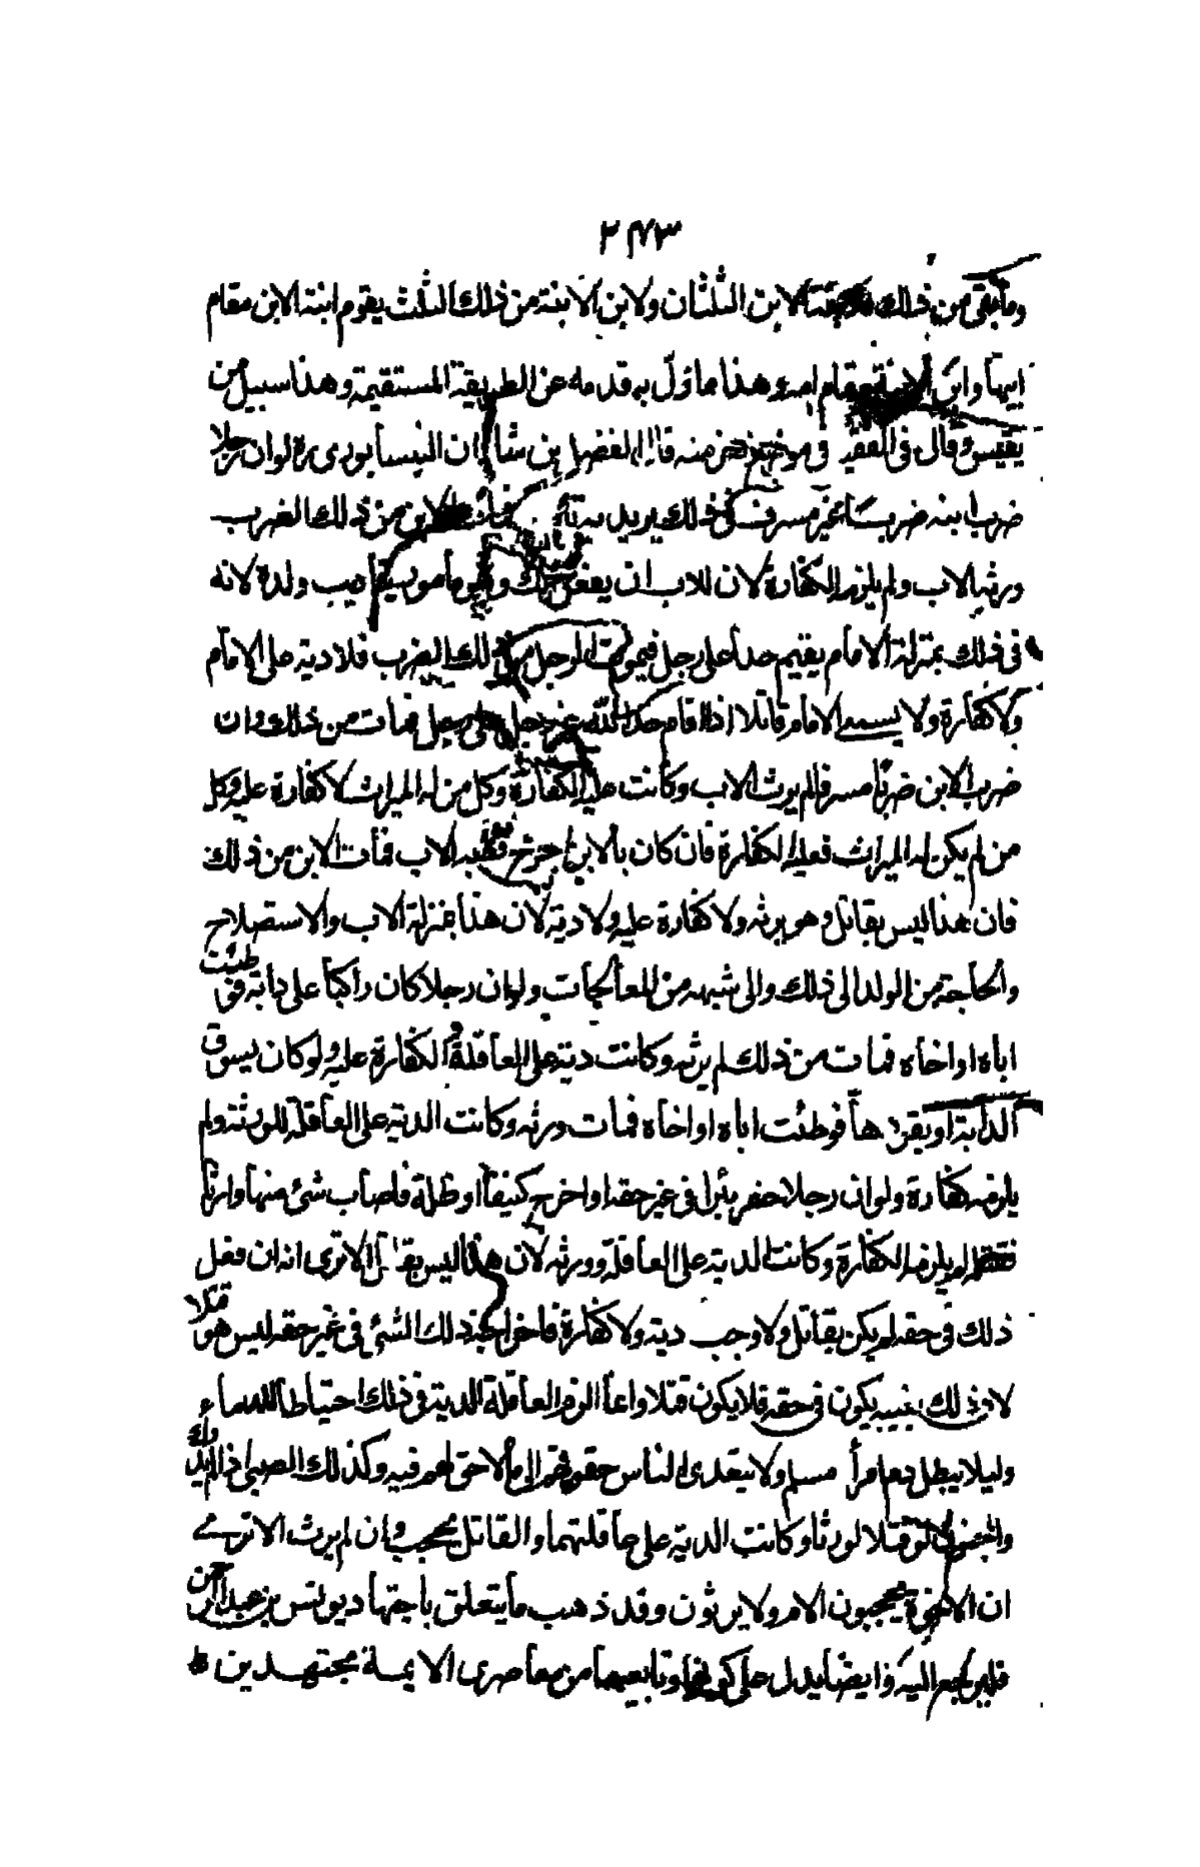 ٢٧٣
وما بقى من ذلك فلابنة الابن الثلثان ولابن الابنة من ذلك الثلث يقوم ابنة الابن مقام
ابيها وابن الابنة مقام امه وهذا مما زلّ به قدمه عن الطريقة المستقيمة وهذا سبيل من
يقيس وقال فى الفقيه فى موضع اخر منه قال الفضل بن شاذان النيسابورى ره لو ان رجلا
ضرب ابنه ضربا غير مسرف فى ذلك يريد به تأديبه فمات الابن من ذلك الضرب
ورثه الاب ولم يلزمه الكفارة لان للاب ان يفعل ذلك وهو مأمور بتأديب ولده لانه
فى ذلك بمنزلة الامام يقيم حدا على رجل فيموت الرجل من ذلك الضرب فلا دية على الامام
ولا كفارة ولا يسمى الامام قاتلا اذا اقام حد الله عز وجل على رجل فمات من ذلك وان
ضرب الابن ضربا مسرفا لم يرث الاب وكانت عليه الكفارة وكل من له الميراث لا كفارة عليه وكل
من لم يكن له الميراث فعليه الكفارة فان كان بالابن جرح فبطه الاب فمات الابن من ذلك
فان هذا ليس بقاتل وهو يرثه ولا كفارة عليه ولا دية لان هذا بمنزلة الادب والاستصلاح
والحاجة من الولد الى ذلك والى شبهه من المعالجات ولو ان رجلا كان راكبا على دابة فوطئت
اباه او اخاه فمات من ذلك لم يرثه وكانت ديته على العاقلة والكفارة عليه ولو كان يسوق
الدابة او يقودها فوطئت اباه او اخاه فمات ورثه وكانت الدية على العاقلة للورثة ولم
يلزمه كفارة ولو ان رجلا حفر بئرا فى غير حقه او اخرج كنيفا او ظلة فاصاب شئ منها وارثا
فقتله لم يلزمه الكفارة وكانت الدية على العاقلة وورثه لان هذا ليس بقاتل الا ترى انه ان فعل
ذلك فى حقه لم يكن بقاتل ولا وجب دية ولا كفارة فاخراجه ذلك الشئ فى غير حقه ليس هو قتلا
لان ذلك بعينه يكون فى حقه فلا يكون قتلا وانما الزم العاقلة الدية فى ذلك احتياطا للدماء
وليلا يبطل دم امرأ مسلم ولا يتعدى الناس حقوقهم الى ما لا حق لهم فيه وكذلك الصبى اذا لم يدرك
والمجنون لو قتلا لورثا وكانت الدية على عاقلتهما والقاتل يحجب وان لم يرث الا ترى
ان الاخوة يحجبون الام ولا يرثون وقد ذهب ما يتعلق باجتهاد يونس بن عبد الرحمن
فليراجع اليه وايضا يدل على كونهما وتابعيهما من معاصرى الايمة مجتهدين